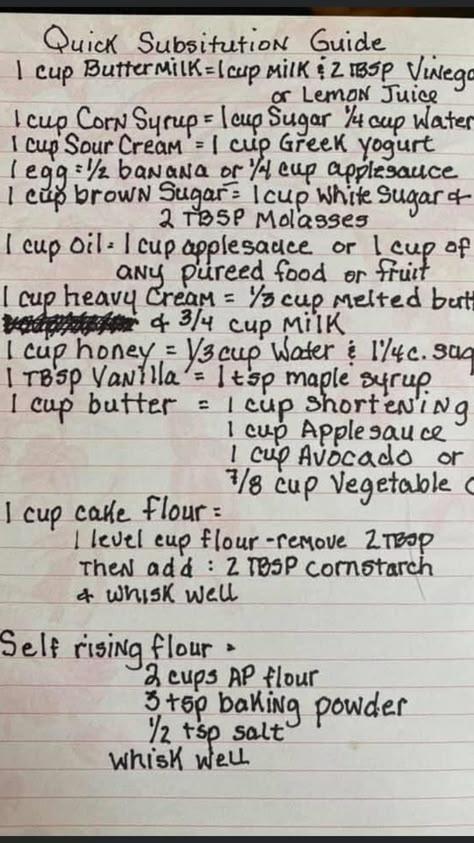 Quick Subsitution Guide
1 cup Buttermilk = 1 cup milk & 2 TBSP Vinega
or Lemon Juice
1 cup Corn Syrup = 1 cup Sugar 1/4 cup Water
1 cup Sour Cream = 1 cup Greek yogurt
1 egg = 1/2 banana or 1/4 cup applesauce
1 cup brown Sugar = 1 cup White Sugar &
2 TBSP Molasses
1 cup oil = 1 cup applesauce or 1 cup of
any pureed food or fruit
1 cup heavy Cream = 1/3 cup melted butt
& 3/4 cup Milk
1 cup honey = 1/3 cup Water & 1 1/4 c. sug
1 TBSP Vanilla = 1 tsp maple syrup
1 cup butter = 1 cup Shortening
1 cup Applesauce
1 cup Avocado or
7/8 cup Vegetable
1 cup cake flour =
1 level cup flour - remove 2 TBSP
Then add : 2 TBSP cornstarch
& whisk well
Self rising flour =
2 cups AP flour
3 tsp baking powder
1/2 tsp salt
whisk well